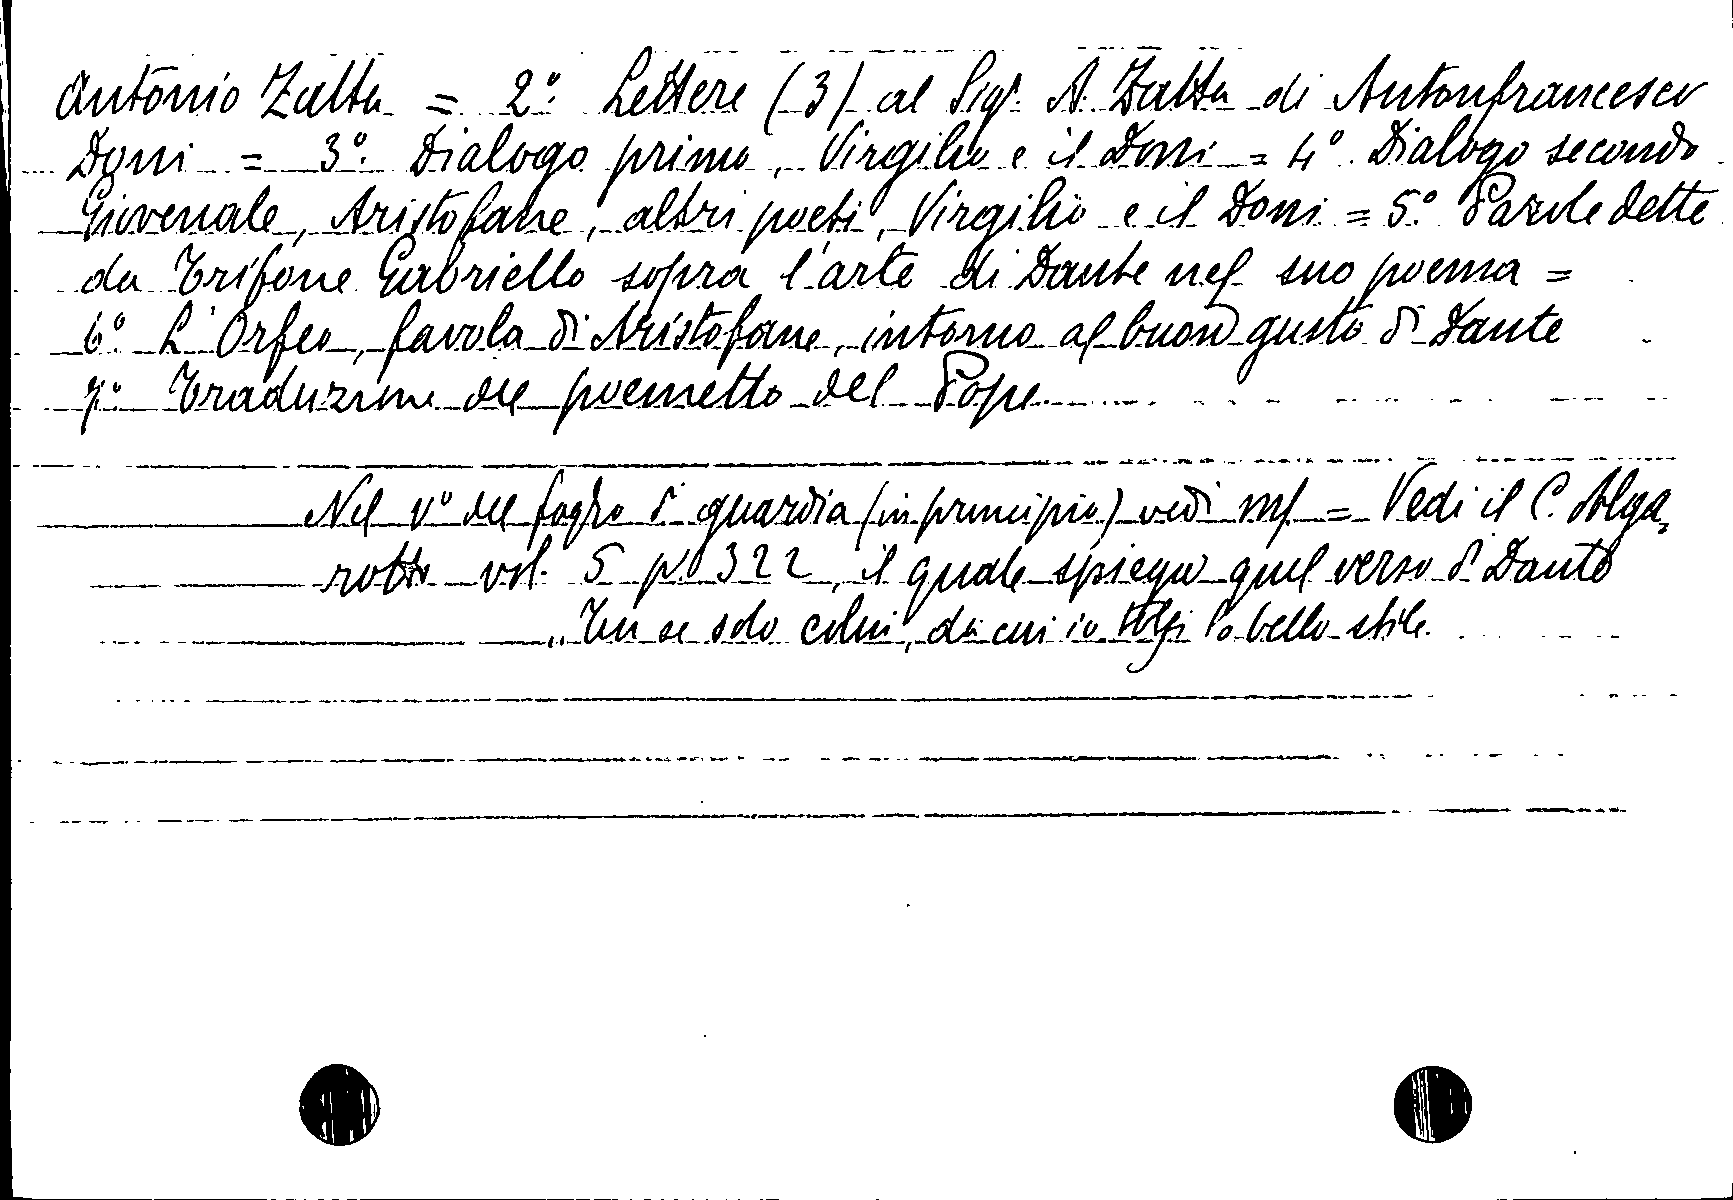 Antonio Zatta = 2°. Lettere (3) al Sigr. A. Zatta di Antonfrancesco
Doni = 3°. Dialogo primo, Virgilio e il Doni = 4°. Dialogo secondo
Giovenale, Aristofane, altri poeti, Virgilio e il Doni = 5°. Parole dette
da Trifone Gabriello sopra l'arte di Dante nel suo poema =
6°. L'Orfeo, favola di Aristofane, intorno al buon gusto di Dante
7°. Traduzione del poemetto del Pope.
Nel v° del foglio di guardia (in principio) vedi mf = Vedi il C. Alga,
rotti vol. 5 p. 322, il quale spiega quel verso di Dante
„Tu se solo colui, da cui io tolsi lo bello stile.